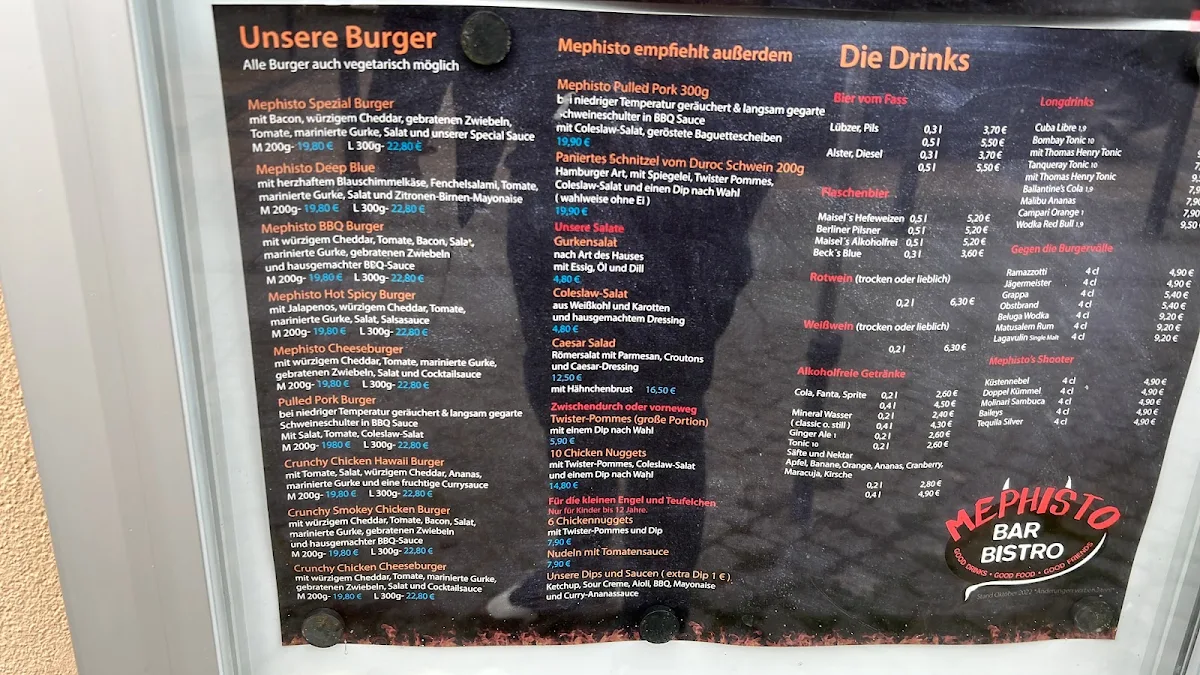 Unsere Burger
Alle Burger auch vegetarisch möglich
Mephisto Spezial Burger
mit Bacon, würzigem Cheddar, gebratenen Zwiebeln,
Tomate, marinierte Gurke, Salat und unserer Special Sauce
M 200g- 19,80 € L 300g- 22,80 €
Mephisto Deep Blue
mit herzhaftem Blauschimmelkäse, Fenchelsalami, Tomate,
marinierte Gurke, Salat und Zitronen-Birnen-Mayonaise
M 200g- 19,80 € L 300g- 22,80 €
Mephisto BBQ Burger
mit würzigem Cheddar, Tomate, Bacon, Salat,
marinierte Gurke, gebratenen Zwiebeln
und hausgemachter BBQ-Sauce
M 200g- 19,80 € L 300g- 22,80 €
Mephisto Hot Spicy Burger
mit Jalapenos, würzigem Cheddar, Tomate,
marinierte Gurke, Salat, Salsasauce
M 200g- 19,80 € L 300g- 22,80 €
Mephisto Cheeseburger
mit würzigem Cheddar, Tomate, marinierte Gurke,
gebratenen Zwiebeln, Salat und Cocktailsauce
M 200g- 19,80 € L 300g- 22,80 €
Pulled Pork Burger
bei niedriger Temperatur geräuchert & langsam gegarte
Schweineschulter in BBQ Sauce
Mit Salat, Tomate, Coleslaw-Salat
M 200g- 1980 € L 300g- 22,80 €
Crunchy Chicken Hawaii Burger
mit Tomate, Salat, würzigem Cheddar, Ananas,
marinierte Gurke und eine fruchtige Currysauce
M 200g- 19,80 € L 300g- 22,80 €
Crunchy Smokey Chicken Burger
mit würzigem Cheddar, Tomate, Bacon, Salat,
marinierte Gurke, gebratenen Zwiebeln
und hausgemachter BBQ-Sauce
M 200g- 19,80 € L 300g- 22,80 €
Crunchy Chicken Cheeseburger
mit würzigem Cheddar, Tomate, marinierte Gurke,
gebratenen Zwiebeln, Salat und Cocktailsauce
M 200g- 19,80 € L 300g- 22,80 €
Mephisto empfiehlt außerdem
Mephisto Pulled Pork 300g
bei niedriger Temperatur geräuchert & langsam gegarte
Schweineschulter in BBQ Sauce
mit Coleslaw-Salat, geröstete Baguettescheiben
19,90 €
Paniertes Schnitzel vom Duroc Schwein 200g
Hamburger Art, mit Spiegelei, Twister Pommes,
Coleslaw-Salat und einen Dip nach Wahl
( wahlweise ohne Ei )
19,90 €
Unsere Salate
Gurkensalat
nach Art des Hauses
mit Essig, Öl und Dill
4,80 €
Coleslaw-Salat
aus Weißkohl und Karotten
und hausgemachtem Dressing
4,80 €
Caesar Salad
Römersalat mit Parmesan, Croutons
und Caesar-Dressing
12,50 €
mit Hähnchenbrust 16,50 €
Zwischendurch oder vorneweg
Twister-Pommes (große Portion)
mit einem Dip nach Wahl
5,90 €
10 Chicken Nuggets
mit Twister-Pommes, Coleslaw-Salat
und einem Dip nach Wahl
14,80 €
Für die kleinen Engel und Teufelchen
Nur für Kinder bis 12 Jahre.
6 Chickennuggets
mit Twister-Pommes und Dip
7,90 €
Nudeln mit Tomatensauce
7,90 €
Unsere Dips und Saucen ( extra Dip 1 € )
Ketchup, Sour Creme, Aioli, BBQ, Mayonaise
und Curry-Ananassauce
Die Drinks
Bier vom Fass
Lübzer, Pils 0,3 l 3,70 €
0,5 l 5,50 €
Alster, Diesel 0,3 l 3,70 €
0,5 l 5,50 €
Flaschenbier
Maisel´s Hefeweizen 0,5 l 5,20 €
Berliner Pilsner 0,5 l 5,20 €
Maisel´s Alkoholfrei 0,5 l 5,20 €
Beck´s Blue 0,3 l 3,60 €
Rotwein (trocken oder lieblich)
0,2 l 6,30 €
Weißwein (trocken oder lieblich)
0,2 l 6,30 €
Alkoholfreie Getränke
Cola, Fanta, Sprite 0,2 l 2,60 €
0,4 l 4,50 €
Mineral Wasser 0,2 l 2,40 €
( classic o. still ) 0,4 l 4,30 €
Ginger Ale 1 0,2 l 2,60 €
Tonic 10 0,2 l 2,60 €
Säfte und Nektar
Apfel, Banane, Orange, Ananas, Cranberry,
Maracuja, Kirsche
0,2 l 2,80 €
0,4 l 4,90 €
Longdrinks
Cuba Libre 1,9
Bombay Tonic 10
mit Thomas Henry Tonic
Tanqueray Tonic 10
mit Thomas Henry Tonic
Ballantine's Cola 1,9
Malibu Ananas
Campari Orange 1
Wodka Red Bull 1,9 9,50
Gegen die Burgervölle
Ramazzotti 4 cl 4,90 €
Jägermeister 4 cl 4,90 €
Grappa 4 cl 5,40 €
Obstbrand 4 cl 5,40 €
Beluga Wodka 4 cl 9,20 €
Matusalem Rum 4 cl 9,20 €
Lagavulin Single Malt 4 cl 9,20 €
Mephisto's Shooter
Küstennebel 4 cl 4,90 €
Doppel Kümmel 4 cl 4,90 €
Molinari Sambuca 4 cl 4,90 €
Baileys 4 cl 4,90 €
Tequila Silver 4 cl 4,90 €
MEPHISTO
BAR
BISTRO
GOOD DRINKS • GOOD FOOD • GOOD FRIENDS
Stand Oktober 2022